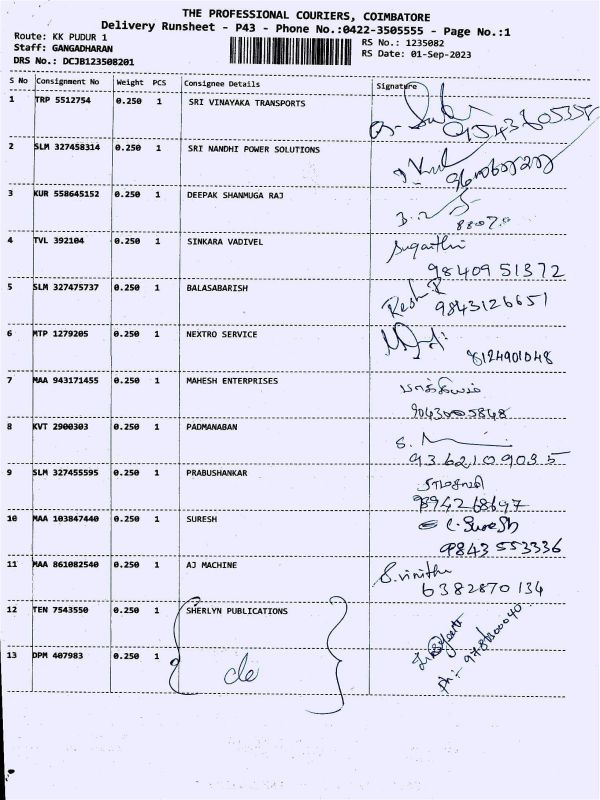 THE PROFESSIONAL COURIERS, COIMBATORE
Delivery Runsheet - P43 - Phone No.:0422-3505555 - Page No.:1
Route: KK PUDUR 1
RS No.: 1235082
Staff: GANGADHARAN
RS Date: 01-Sep-2023
DRS No.: DCJB123508201
S No Consignment No Weight PCS Consignee Details Signature
1 TRP 5512754 0.250 1 SRI VINAYAKA TRANSPORTS
2 SLM 327458314 0.250 1 SRI NANDHI POWER SOLUTIONS
3 KUR 558645152 0.250 1 DEEPAK SHANMUGA RAJ
4 TVL 392104 0.250 1 SINKARA VADIVEL Suganthi
98409 51372
5 SLM 327475737 0.250 1 BALASABARISH
9843126651
6 MTP 1279205 0.250 1 NEXTRO SERVICE
8124901048
7 MAA 943171455 0.250 1 MAHESH ENTERPRISES பாக்கியம்
8 KVT 2900303 0.250 1 PADMANABAN
9362109035
9 SLM 327455595 0.250 1 PRABUSHANKAR
9894268697
10 MAA 103847440 0.250 1 SURESH C. Suresh
9843 553336
11 MAA 861082540 0.250 1 AJ MACHINE S. vinitha
6382870 134
12 TEN 7543550 0.250 1 SHERLYN PUBLICATIONS
13 DPM 407983 0.250 1
ph:-